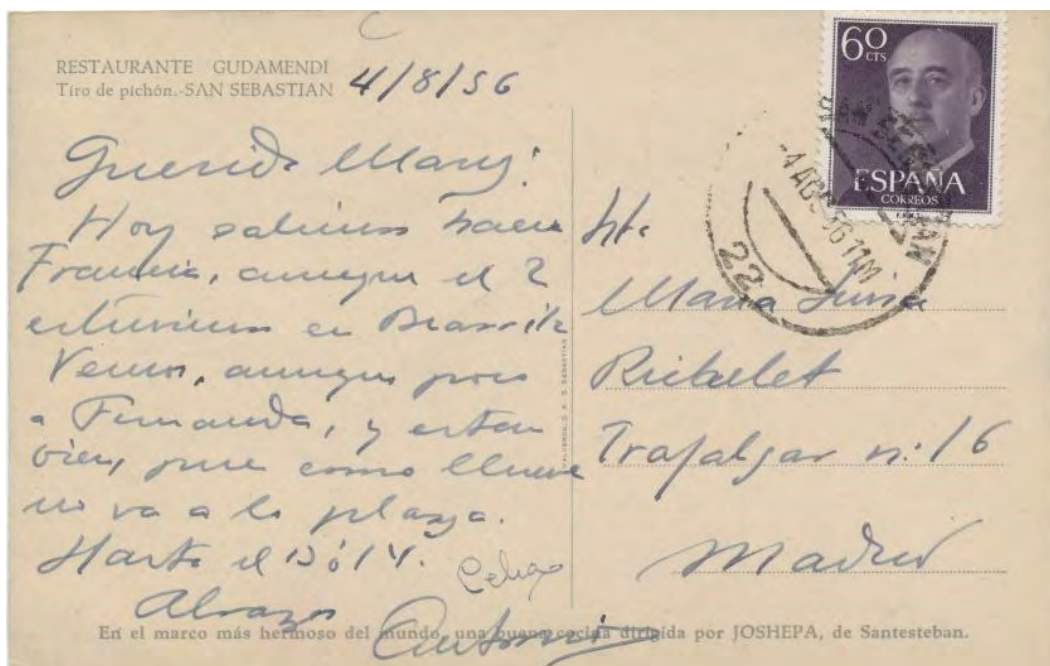 RESTAURANTE GUDAMENDI
Tiro de pichón.-SAN SEBASTIAN
4/8/56
Querida Mary:
Hoy salimos hacia
Francia, aunque el 2
estuvimos en Biarritz
Vemos, aunque poco
a Fernanda, y estan
bien, pues como llueve
no va a la playa.
Hasta el 13 ó 14.
Abrazos
Antonio
60
CTS
ESPAÑA
CORREOS
F.N.M.T.
SAN SEBASTIAN
-4 AGO 56 11M
22
Srta
Maria Luisa
Ribelet
Trafalgar n: 16
Madrid
VALVERDE, S. A. - S. SEBASTIAN
En el marco más hermoso del mundo, una buena cocina dirigida por JOSHEPA, de Santesteban.